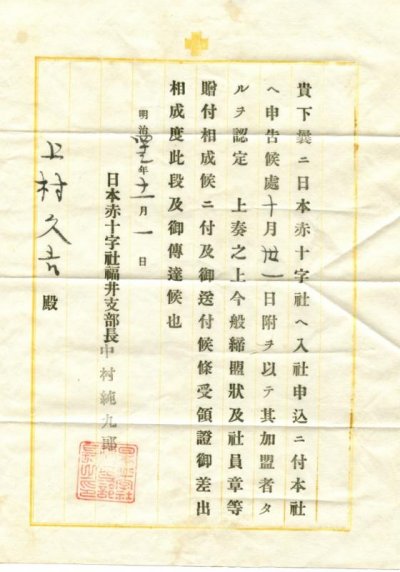 貴下曩ニ日本赤十字社ヘ入社申込ニ付本社
ヘ申告候處十月卅一日附ヲ以テ其加盟者タ
ルヲ認定　上奏之上今般締盟狀及社員章等
贈付相成候ニ付及御送付候條受領證御差出
相成度此段及御傳達候也
明治年月一日
日本赤十字社福井支部長中村純九郎
上村久吉殿